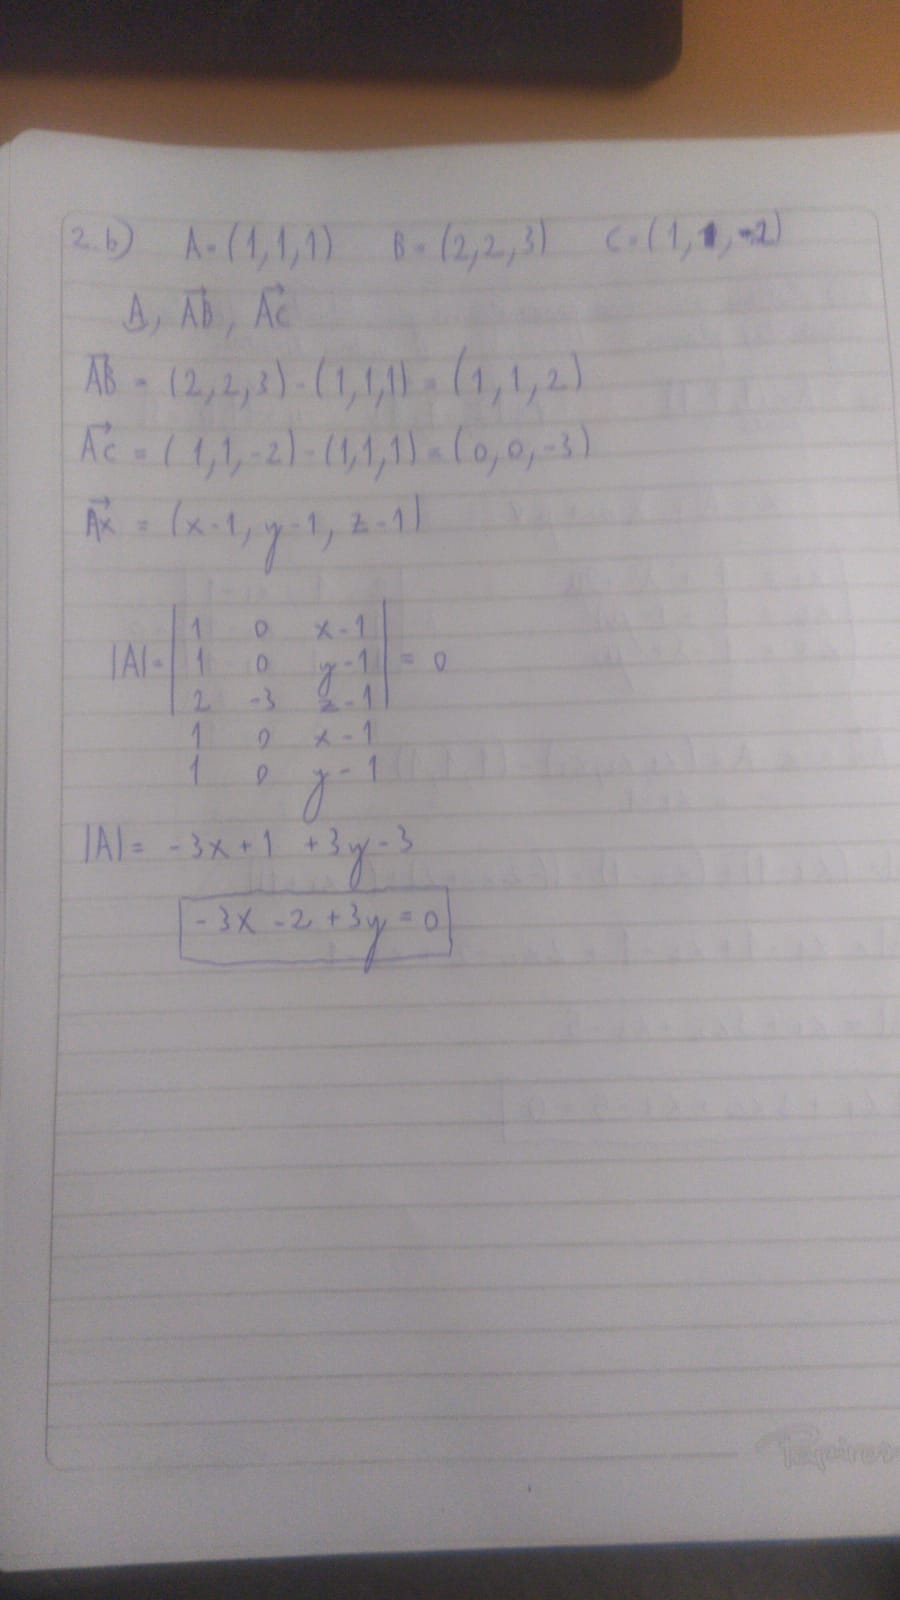 2.b) A=(1,1,1) B=(2,2,3) C=(1,1,-2)
A, AB, AC
AB = (2,2,3)-(1,1,1) = (1,1,2)
AC = (1,1,-2)-(1,1,1) = (0,0,-3)
AX = (x-1, y-1, z-1)
1 0 x-1
|A|= 1 0 y-1 = 0
2 -3 z-1
1 0 x-1
1 0 y-1
|A|= -3x+1 +3y-3
-3x -2 +3y = 0